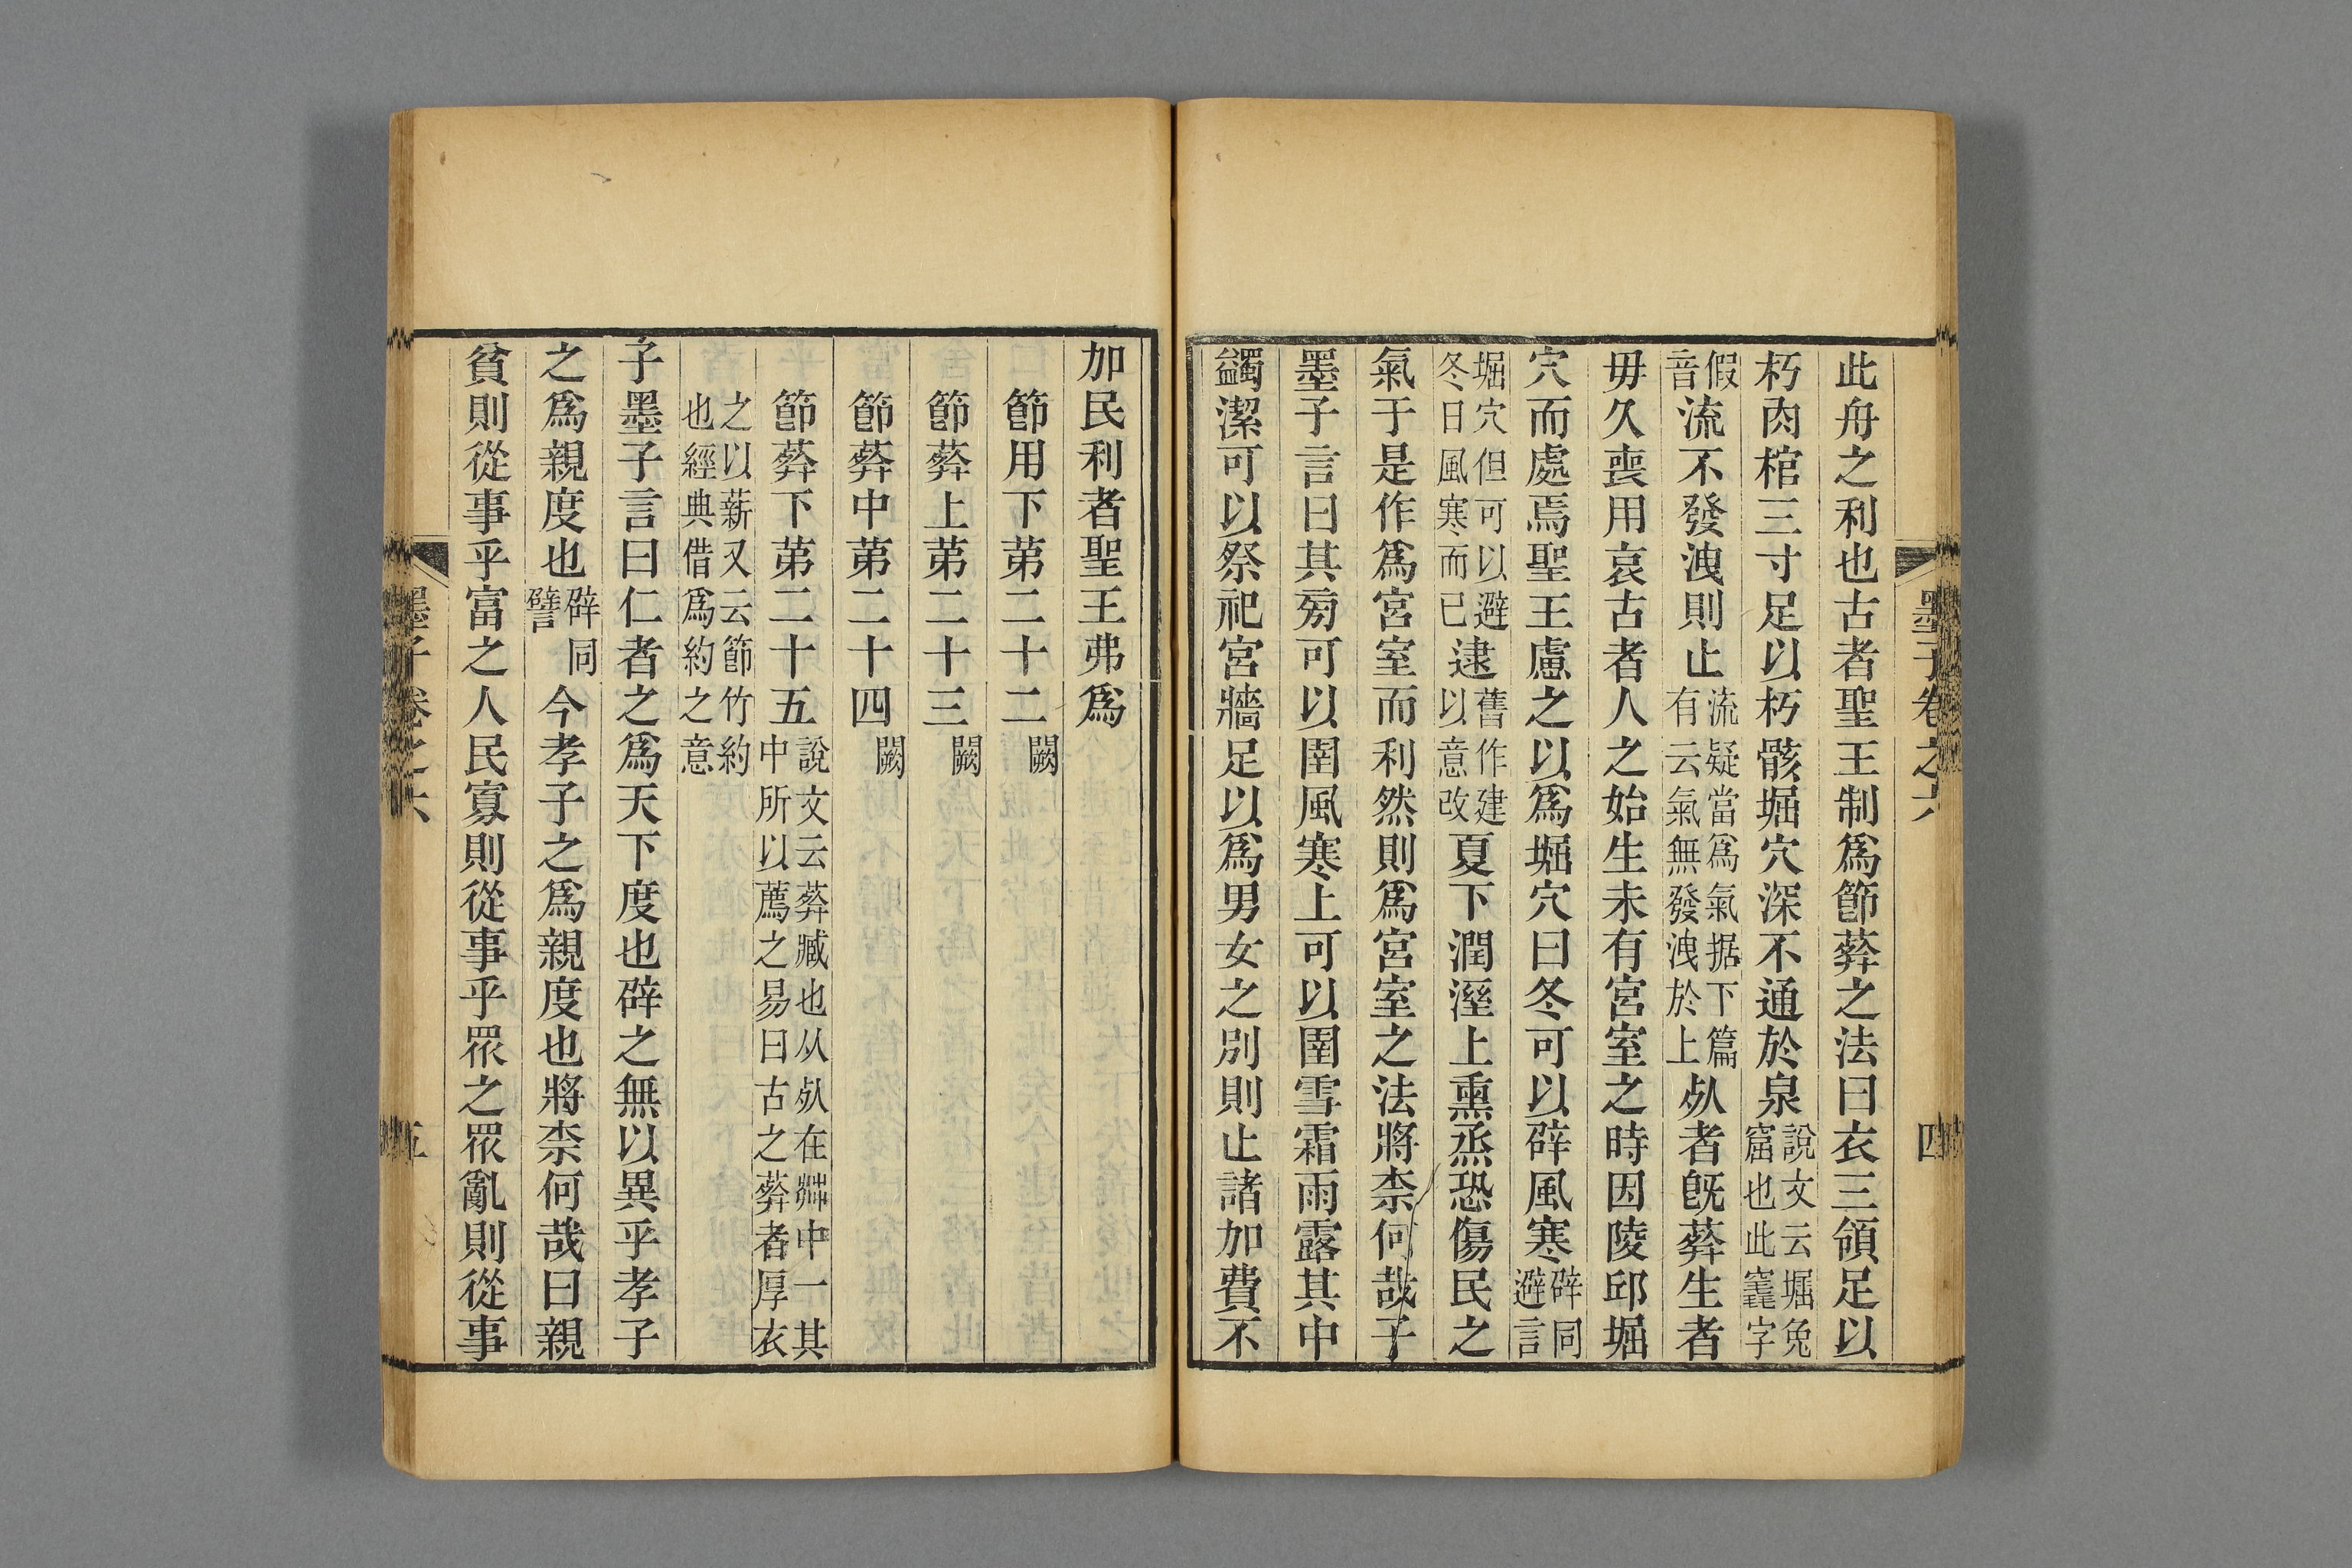 此舟之利也古者聖王制爲節葬之法曰衣三領足以
朽肉棺三寸足以朽骸堀穴深不通於泉說文云堀兔窟也此竁字
假音流不發洩則止流疑當爲氣据下篇有云氣無發洩於上㱙者旣葬生者
毋久喪用哀古者人之始生未有宮室之時因陵邱堀
穴而處焉聖王慮之以爲堀穴曰冬可以辟風寒辟同避言
堀穴但可以避冬日風寒而已逮舊作建以意改夏下潤溼上熏烝恐傷民之
氣于是作爲宮室而利然則爲宮室之法將柰何哉子
墨子言曰其㫄可以圉風寒上可以圉雪霜雨露其中
蠲潔可以祭祀宮牆足以爲男女之別則止諸加費不
墨子卷之六
四
加民利者聖王弗爲
節用下第二十二闕
節葬上第二十三闕
節葬中第二十四闕
節葬下第二十五說文云葬臧也从㱙在茻中一其中所以薦之易曰古之葬者厚衣
之以薪又云節竹約也經典借爲約之意
子墨子言曰仁者之爲天下度也辟之無以異乎孝子
之爲親度也辟同譬今孝子之爲親度也將柰何哉曰親
貧則從事乎富之人民寡則從事乎眾之眾亂則從事
墨子卷之六
五